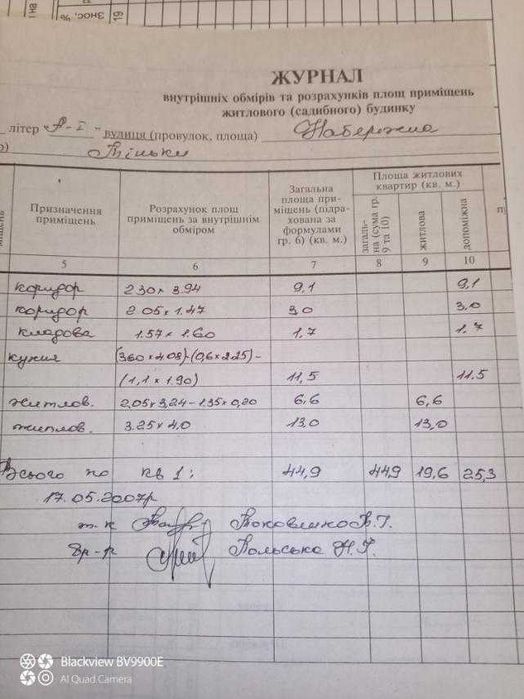 знос, %
19
ЖУРНАЛ
внутрішніх обмірів та розрахунків площ приміщень
житлового (садибного) будинку
літер "А-I" вулиця (провулок, площа) Набережна
Призначення приміщень
Розрахунок площ приміщень за внутрішнім обміром
Загальна площа при-міщень (підра-хована за формулами гр. 6) (кв. м.)
Площа житлових квартир (кв. м.)
загаль-на (сума гр. 9 та 10)
житлова
допоміжна
5 6 7 8 9 10
коридор 2.30 х 3.94 9,1 9,1
коридор 2.05 х 1.47 3,0 3,0
кладова 1.57 х 1.60 1.7 1.7
кухня (3.60 х 4.08)-(0,6 х 2.25)-
(1,1 х 1.90) 11,5 11.5
житлов. 2,05 х 3,24 - 1.35 х 0,20 6,6 6,6
житлов. 3.25 х 4,0 13,0 13,0
Всього по кв 1: 44,9 44,9 19,6 25,3
17.05.2007р
т.к
Польська Н.Г.
Blackview BV9900E
AI Quad Camera